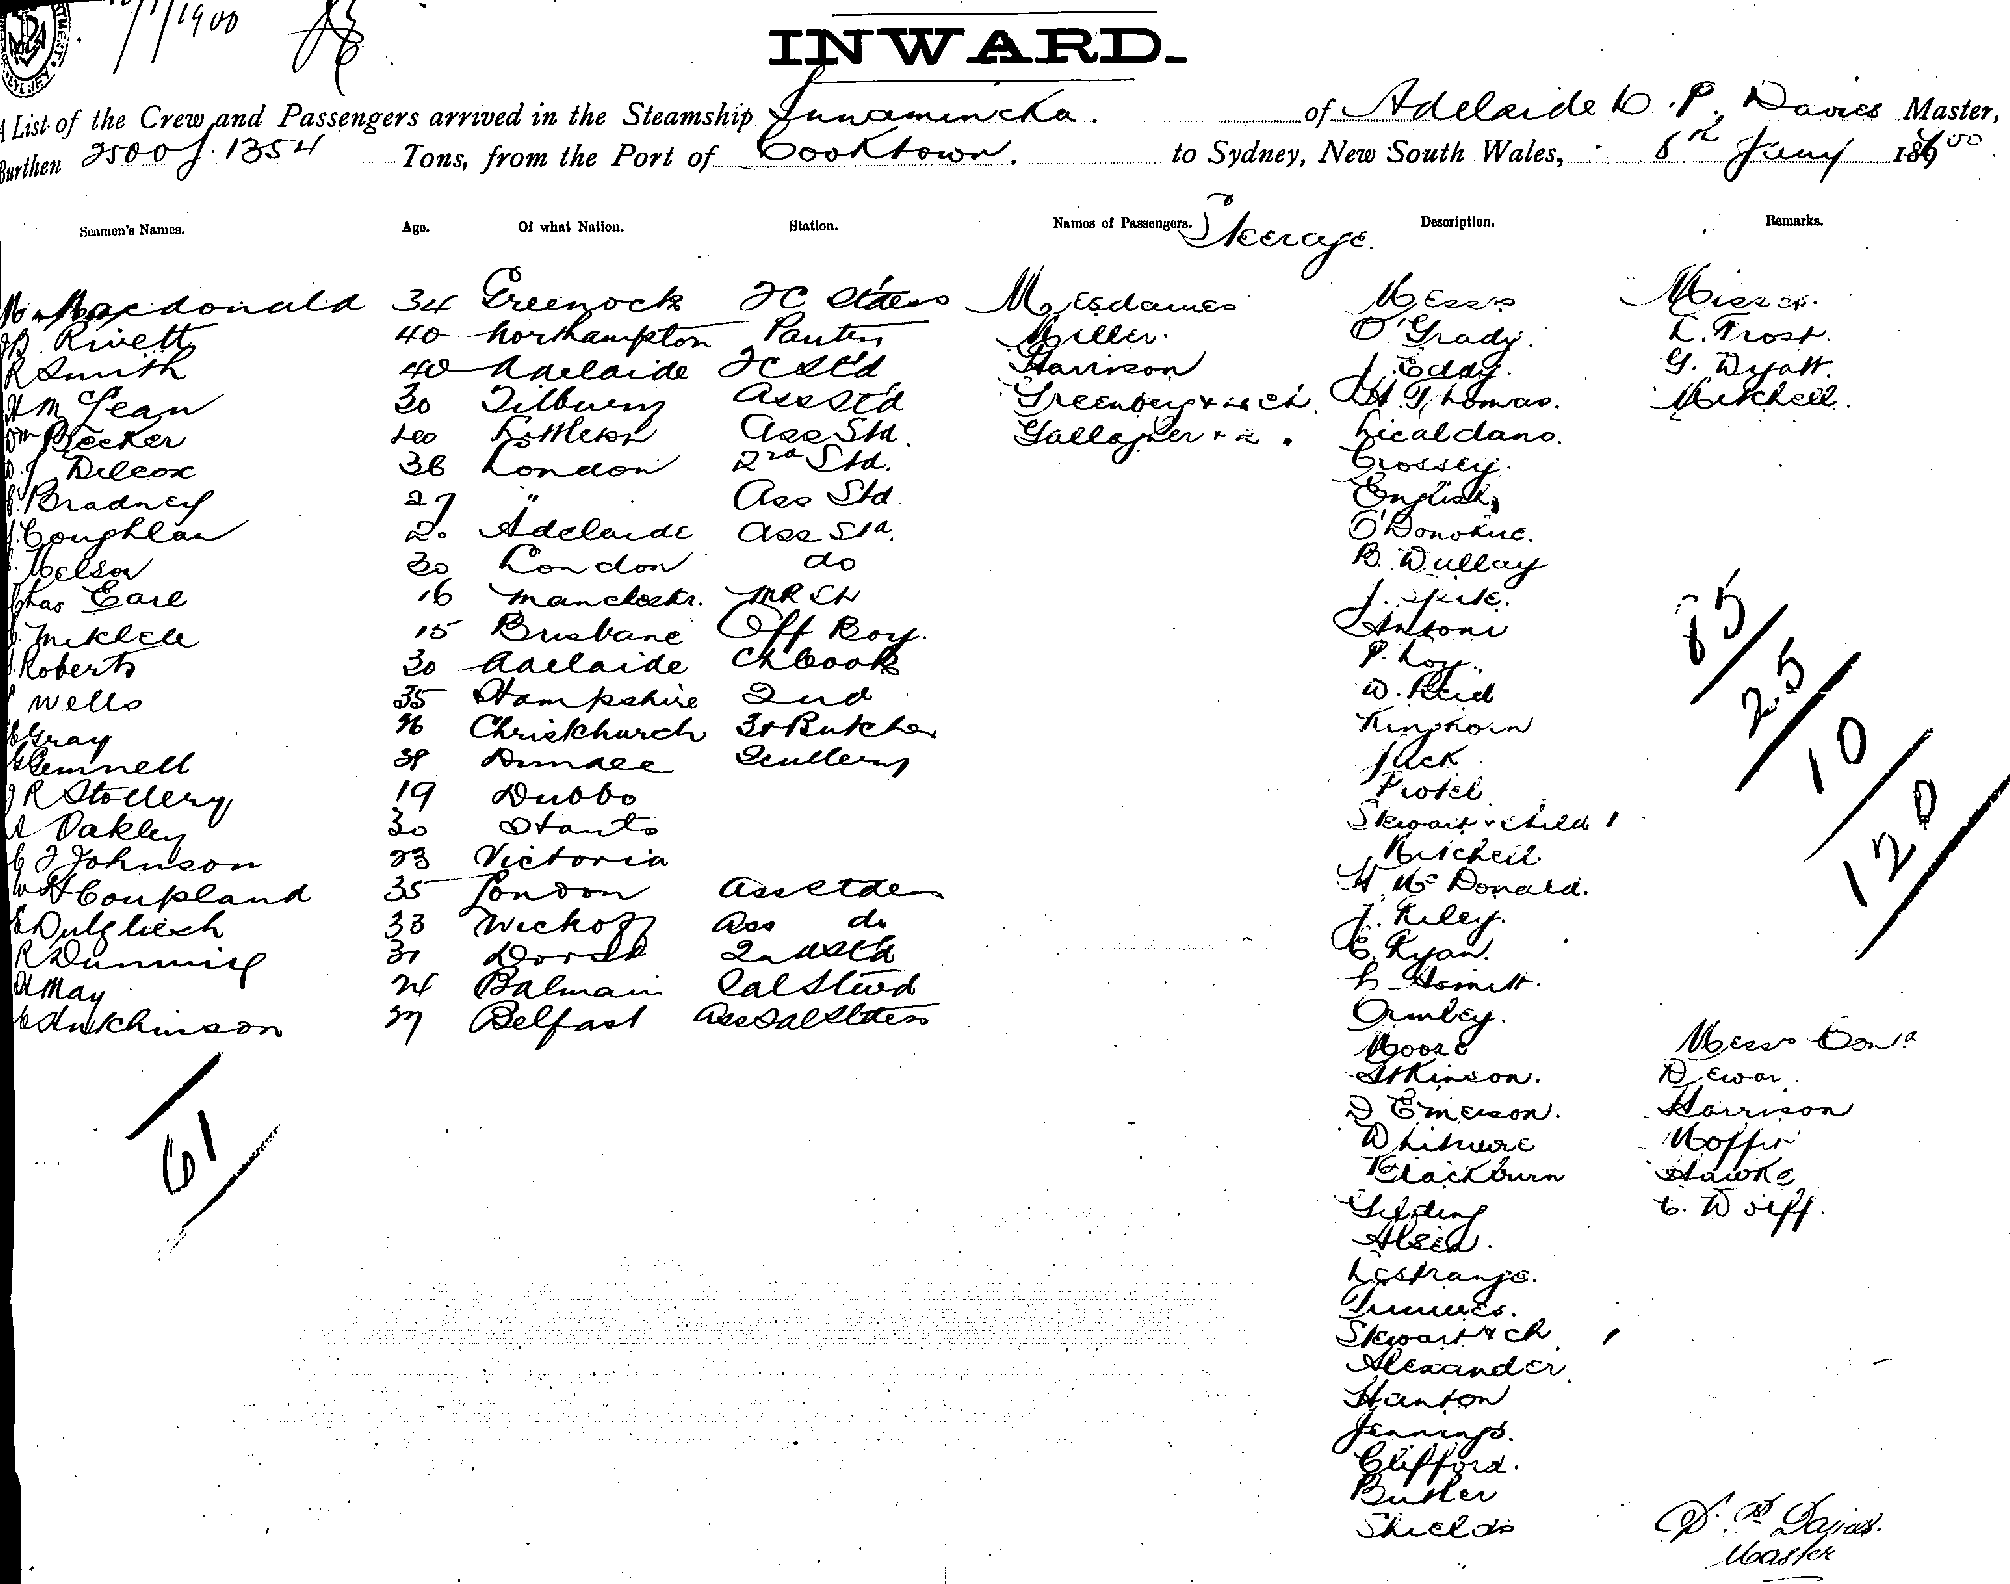 /1/1900
INWARD.
A List of the Crew and Passengers arrived in the Steamship Innamincka. of Adelaide D. P. Davies Master,
Burthen 2500 1354 Tons, from the Port of Cooktown. to Sydney, New South Wales, 8th Jany 1900
Seamen's Names. Age. Of what Nation. Station. Names of Passengers. Steerage. Description. Remarks.
Macdonald 34 Greenock FC Stdess Mesdames Messrs Misses.
Rivett 40 Northampton Pantry Miller. O'Grady. L. Frost.
R Smith 40 Adelaide FC Std Harrison J. Eddy. G. Wyatt.
McLean 30 Tilbury Ass Std Greenberg & ch H. Thomas. Mitchell.
Wm Becker 40 Ass Std. Gallagher & 2. Licaldano.
Dilcox 36 London 2nd Std. Crossey.
Bradney 27 " Ass Std English,
Coughlan 20 Adelaide Ass Std. O'Donohue.
Nelson 30 London do B. Dullay
Chas Earl 16 Manchestr. J.
15 Brisbane Off Boy. Antoni
Roberts 30 Adelaide Ch Cook P. Loy.
Wells 35 Hampshire 2nd W. Reid
Gray 26 Christchurch Butcher Kinghorn
Gemnell 38 Dundee Scullery Jack
J R Stollery 19 Dubbo
A Oakley 30 Hants Stewart & child 1
C J Johnson 23 Victoria Mitchell
W H Coupland 35 London Ass Stdes H McDonald.
Dulgliesh 33 Ass do J. Riley.
R Dunning 31 Dorset 2nd Std E. Ryan.
H May 24 Balmain Sal Stwd
C Hutchinson 27 Belfast Ass Sal Stdess Ormbey.
Moore Messrs Cond
Atkinson. Dewar.
D Emerson. Harrison
Whitmore Moffit
Blackburn Hawke
Gilding C. Wolff.
Allen.
Lestrange.
Stewart & ch 1
Alexander.
Stanton
Jennings.
Clifford.
Butler
Shields
61
85
25
10
120
D. P. Davies.
Master